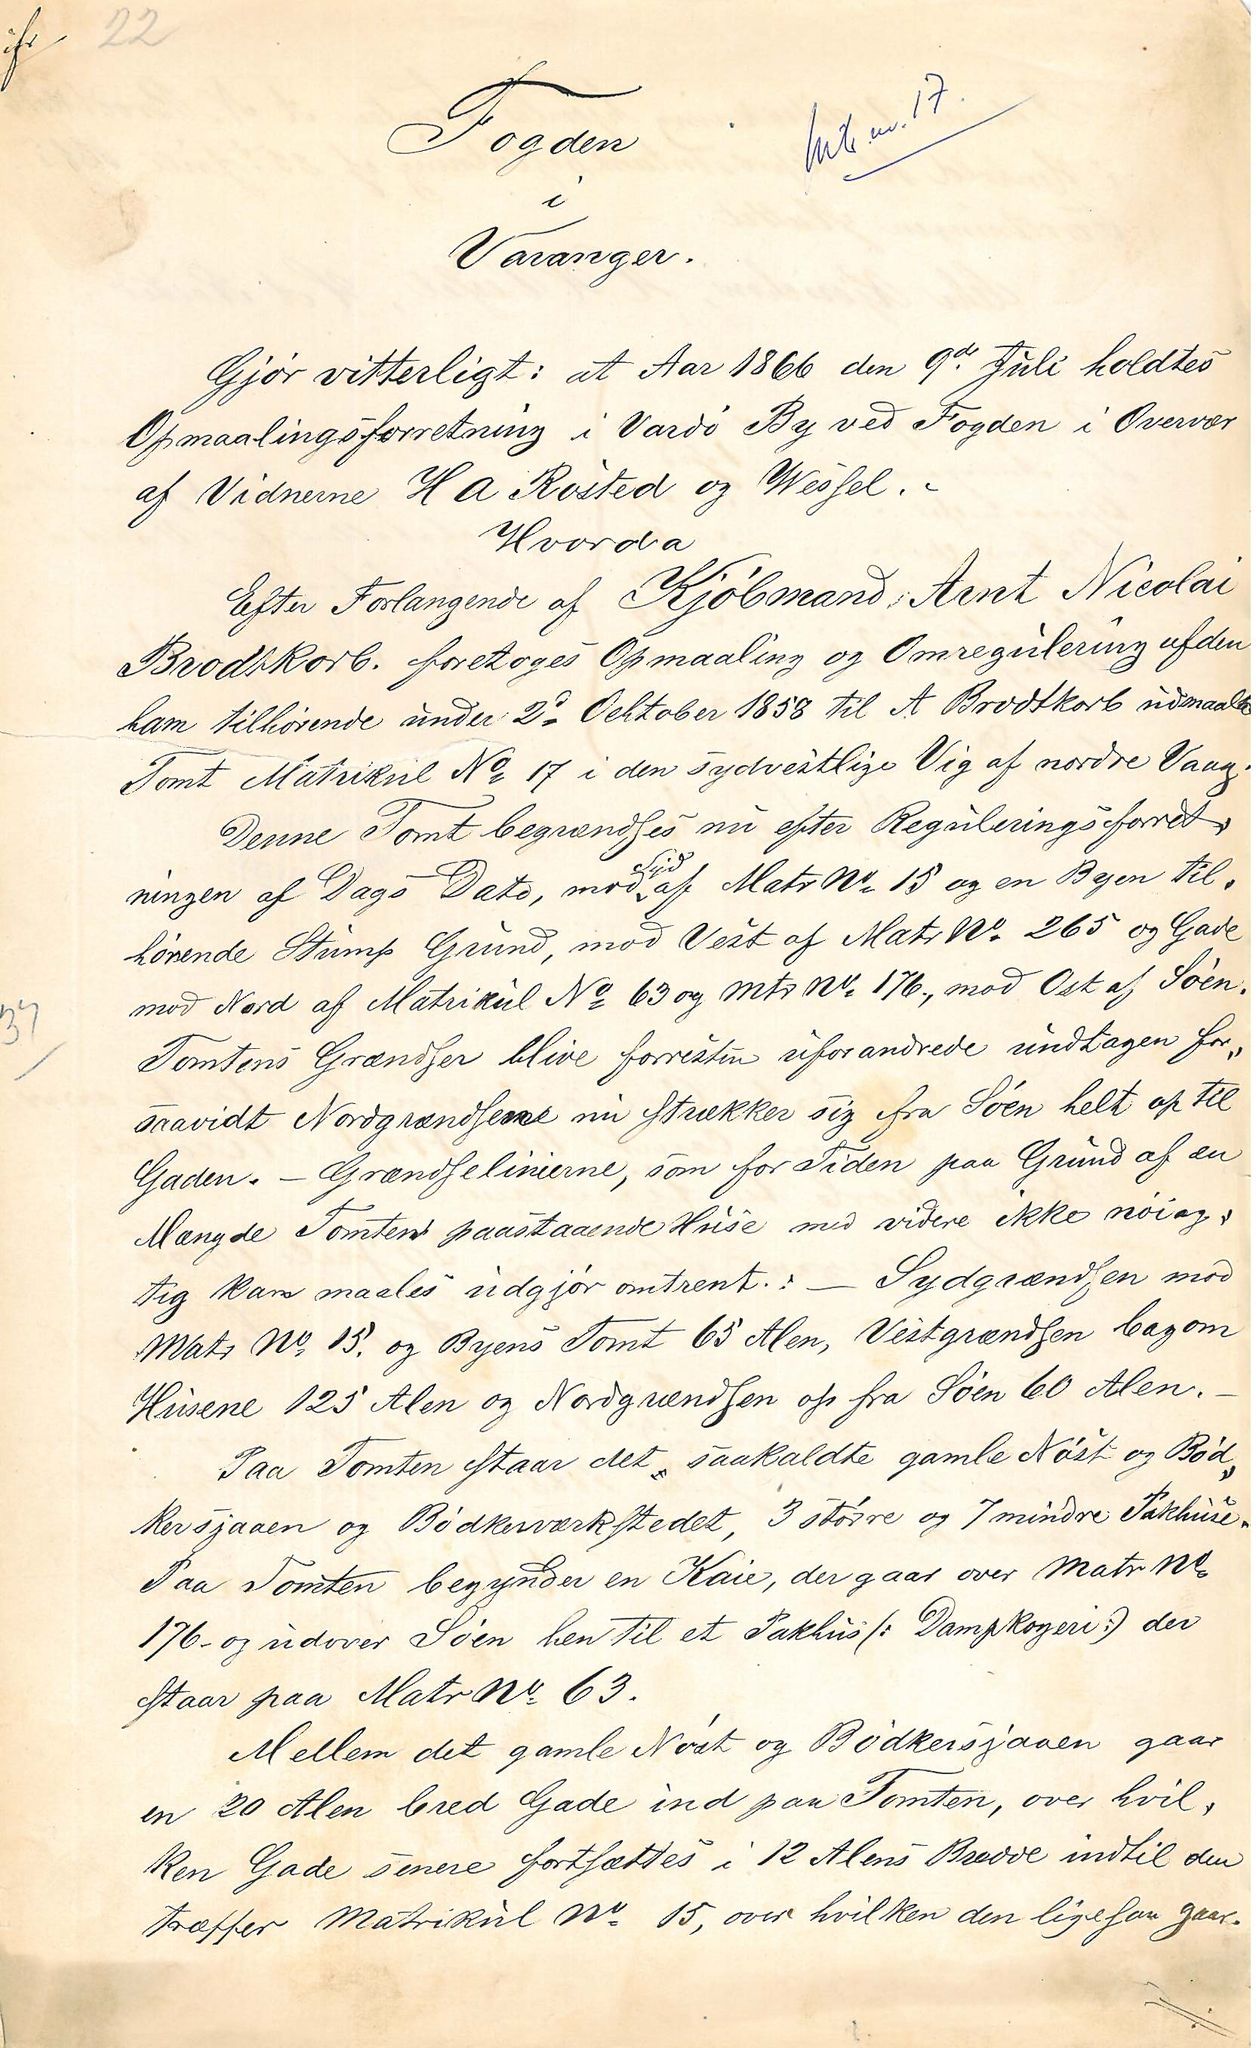 22
Fogden
i
Varanger.
mtr. nr. 17.
Gjør vitterligt: at Aar 1866 den 9de Juli holdtes
Opmaalingsforretning i Vardö By ved Fogden i Overvær
af Vidnerne H A Rösted og Wessel.
Hvorda
Efter Forlangende af Kjöbmand, Arnt Nicolai
Brodtkorb. foretoges Opmaaling og Omregulering af den
ham tilhörende under 2d Ochtober 1858 til A Brodtkorb udmaalte
Tomt Matrikul No 17 i den sydvestlige Vig af nordre Vaag.
Denne Tomt begrændses nu efter Reguleringsforret„
ningen af Dags Dato, mod Syd af Matr No 15 og en Byen til„
hörende Stump Grund, mod Vest af Matr No. 265 og Gade
mod Nord af Matrikul No 63 og Mtr No. 176., mod Ost af Söen.
37
Tomtens Grændser blive forresten uforandrede undtagen for„
saavidt Nordgrændsene nu strækker sig fra Söen helt op til
Gaden. — Grændselinierne, som for Tiden paa Grund af en
Mængde Tomten paastaaende Huse med videre ikke nöiag„
tig kan maales udgjör omtrent.: — Sydgrændsen mod
Matr No. 15. og Byens Tomt 65 Alen, Vestgrændsen bagom
Husene 125 Alen og Nordgrændsen op fra Söen 60 Alen. —
Paa Tomten staar det saakaldte gamle Nöst og Böd„
kersjaaen og Bödkerværkstedet, 3 större og 7 mindre Pakhuse.
Paa Tomten begynder en Kaie, der gaar over Matr No
176 og udover Söen hen til et Pakhus (: Dampkogeri :) der
staar paa Matr No. 63.
Mellem det gamle Nöst og Bödkersjaaen gaar
en 20 Alen bred Gade ind paa Tomten, over hvil„
ken Gade senere fortsættes i 12 Alens Bredde indtil den
træffer Matrikul No. 15, over hvilken den ligesaa gaar.